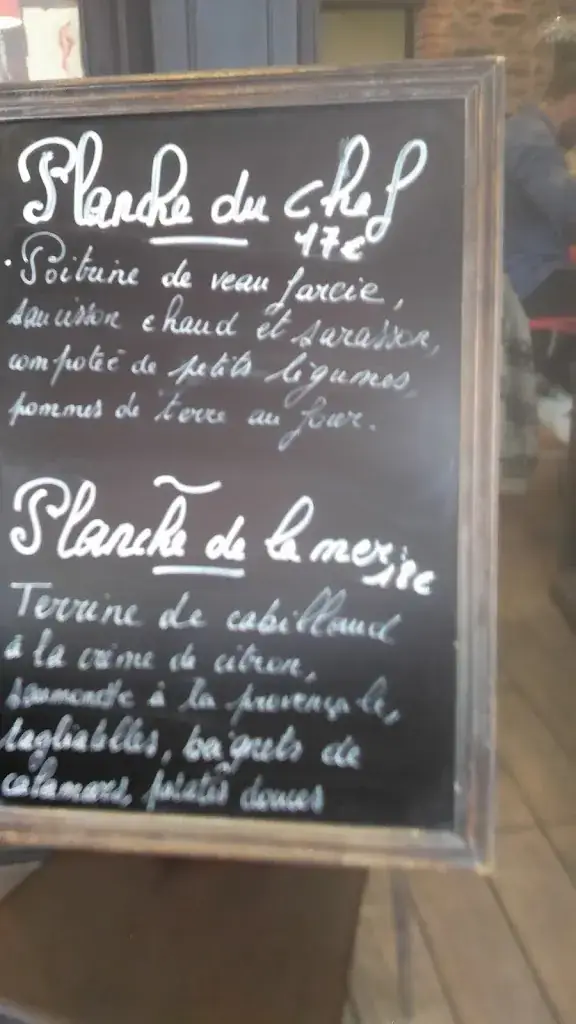 Planche du chef
17€
. Poitrine de veau farcie,
saucisson chaud et sarasson,
compotée de petits légumes,
pommes de terre au four.
Planche de la mer
18€
Terrine de cabillaud
à la crème de citron,
à la provençale,
tagliatelles, beignets de
calamars, patates douces